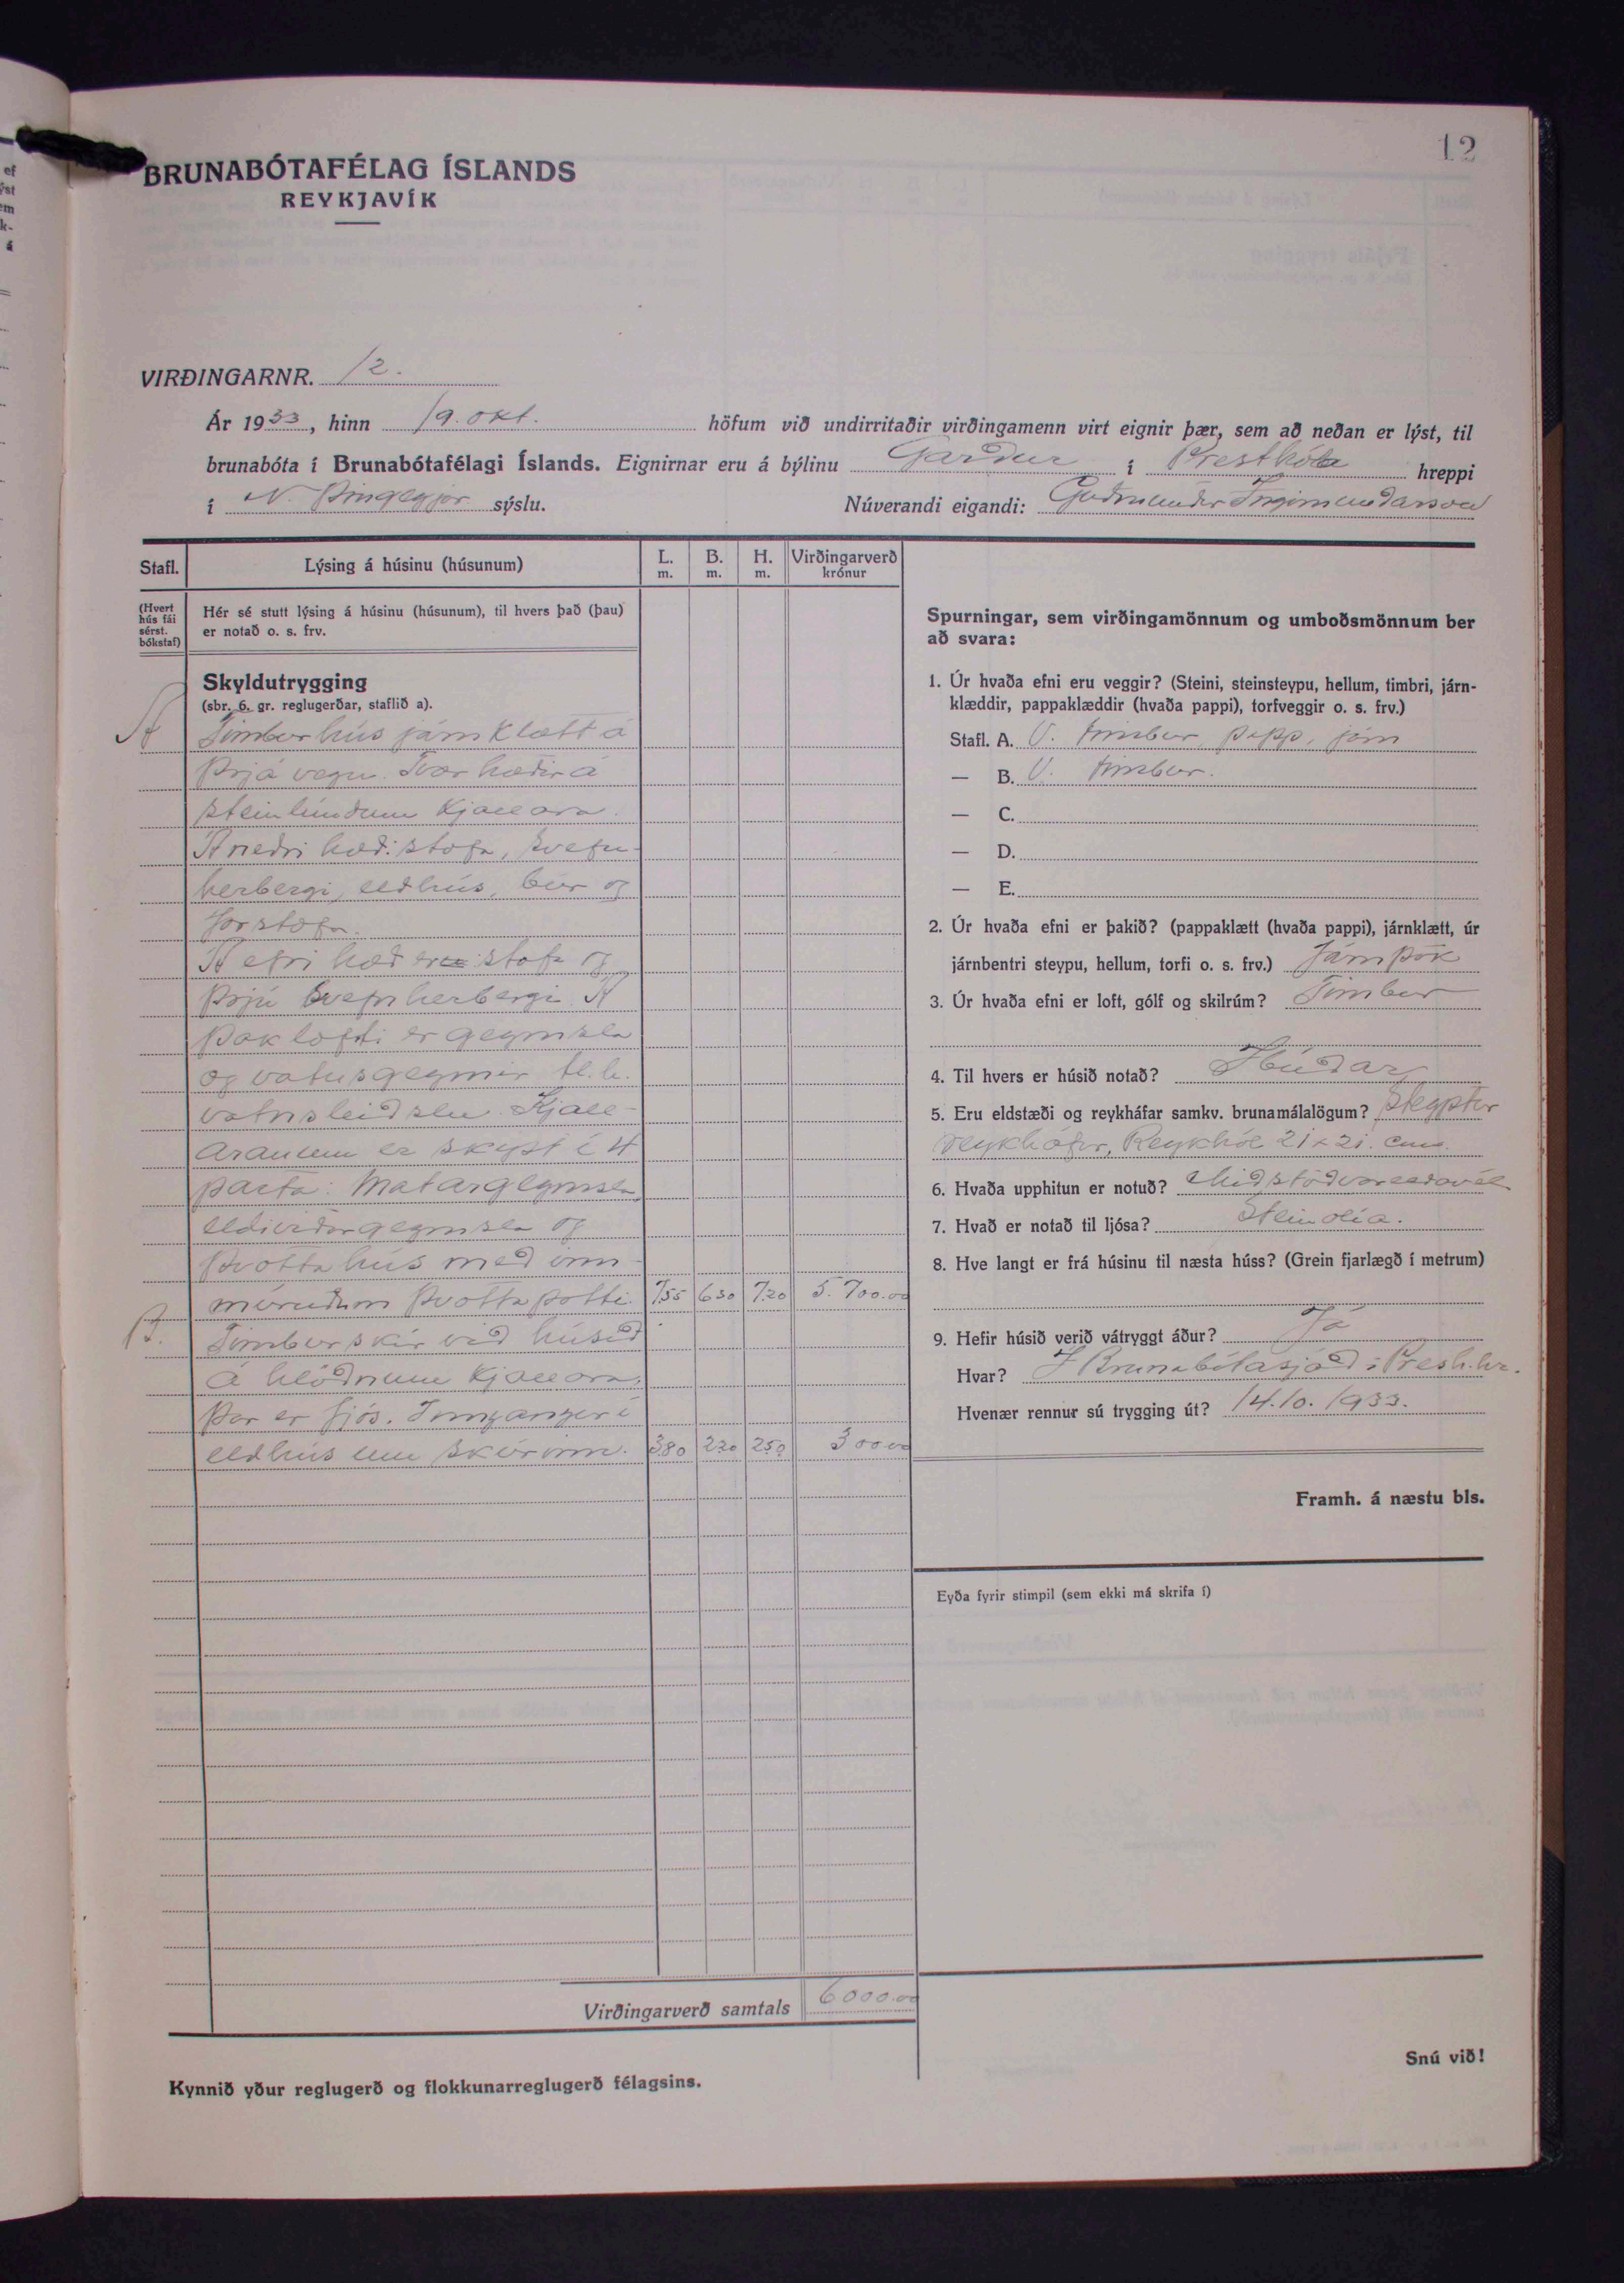 12
BRUNABÓTAFÉLAG ÍSLANDS
REYKJAVÍK
VIRÐINGARNR. 12.
Ár 1933, hinn 19. okt. höfum við undirritaðir virðingamenn virt eignir þær, sem að neðan er lýst, til
brunabóta í Brunabótafélagi Íslands. Eignirnar eru á býlinu Garður í Presthóla hreppi
í N. Þingeyjar sýslu. Núverandi eigandi: Guðmundur Ingimundarson
Stafl. Lýsing á húsinu (húsunum) L. m. B. m. H. m. Virðingarverð krónur
(Hvert hús fái sérst. bókstaf)
Hér sé stutt lýsing á húsinu (húsunum), til hvers það (þau)
er notað o. s. frv.
Skyldutrygging
(sbr. 6. gr. reglugerðar, staflið a).
A Timburhús járnklætt á
þrjá vegu. Tvær hæðir á
steinlímdum kjallara.
Á neðri hæð: stofa, svefn-
herbergi, eldhús, búr og
forstofa.
Á efri hæð er stofa og
þrjú svefnherbergi. Á
þaklofti er geymsla
og vatnsgeymir til h.
vatnsleiðslu. Kjall-
aranum er skypt í 4
parta: Matargeymsla
eldiviðargeymsla og
þvottahús með inn-
múruðum þvottapotti. 7,55 6,30 7,20 5.700.00
B. Timburskúr við húsið
á hlöðnum kjallara,
þar er fjós. Inngangur í
eldhús um skúrinn. 3,80 2,20 2,50 300.00
Virðingarverð samtals 6000.00
Kynnið yður reglugerð og flokkunarreglugerð félagsins.
Spurningar, sem virðingamönnum og umboðsmönnum ber
að svara:
1. Úr hvaða efni eru veggir? (Steini, steinsteypu, hellum, timbri, járn-
klæddir, pappaklæddir (hvaða pappi), torfveggir o. s. frv.)
Stafl. A. Ú. timbur, papp, járn
— B. Ú. timbur.
— C.
— D.
— E.
2. Úr hvaða efni er þakið? (pappaklætt (hvaða pappi), járnklætt, úr
járnbentri steypu, hellum, torfi o. s. frv.) Járnþök
3. Úr hvaða efni er loft, gólf og skilrúm? Timbur
4. Til hvers er húsið notað? Íbúðar
5. Eru eldstæði og reykháfar samkv. brunamálalögum? Steyptur
reykháfur, Reykhól 21 x 21. cm.
6. Hvaða upphitun er notuð? Miðstöðvareldavél
7. Hvað er notað til ljósa? Steinolía.
8. Hve langt er frá húsinu til næsta húss? (Grein fjarlægð í metrum)
9. Hefir húsið verið vátryggt áður? Já
Hvar? Í Brunabótasjóð í Presth.hr.
Hvenær rennur sú trygging út? 14.10. 1933.
Framh. á næstu bls.
Eyða fyrir stimpil (sem ekki má skrifa í)
Snú við!